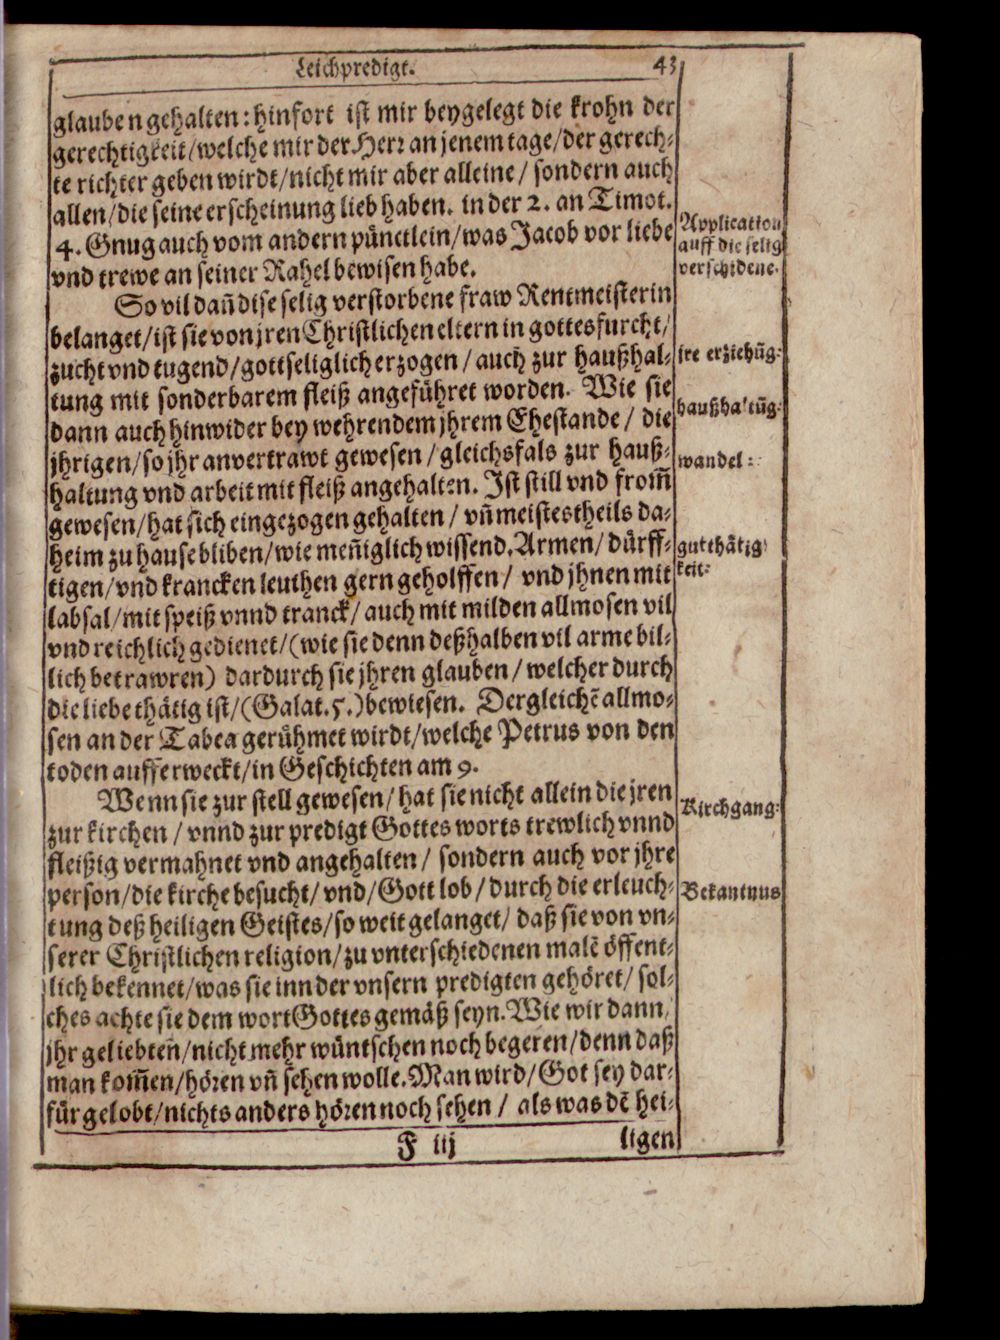 Leichpredigt. 43
glauben gehalten: hinfort ist mir beygelegt die krohn der
gerechtigkeit/welche mir der Herr an jenem tage/der gerech-
te richter geben wirdt/nicht mir aber alleine/ sondern auch
allen/die seine erscheinung lieb haben. in der 2. an Timot.
4. Gnug auch vom andern pünctlein/was Jacob vor liebe
vnd trewe an seiner Rahel bewisen habe.
Application
auff die selig
verschidene.
So vil dañ dise selig verstorbene fraw Rentmeisterin
belanget/ist sie von jren Christlichen eltern in gottesfurcht/
zucht vnd tugend/gottseliglich erzogen/ auch zur haußhal-
tung mit sonderbarem fleiß angeführet worden. Wie sie
dann auch hinwider bey wehrendem jhrem Ehestande/ die
jhrigen/so jhr anvertrawt gewesen/gleichsfals zur hauß-
haltung vnd arbeit mit fleiß angehalten. Ist still vnd from̃
gewesen/hat sich eingezogen gehalten/ vñ meistestheils da-
heim zu hause bliben/wie meñiglich wissend. Armen/ dürff-
tigen/vnd krancken leuthen gern geholffen/ vnd jhnen mit
labsal/mit speiß vnnd tranck/auch mit milden allmosen vil
vnd reichlich gedienet/(wie sie denn deßhalben vil arme bil-
lich betrawren) dardurch sie jhren glauben/welcher durch
die liebe thätig ist/(Galat.5.)bewiesen. Dergleichẽ allmo-
sen an der Tabea gerühmet wirdt/welche Petrus von den
toden aufferweckt/in Geschichten am 9.
jre erziehũg:
haußhaltũg:
wandel:
gutthätig
keit:
Wenn sie zur stell gewesen/ hat sie nicht allein die jren
zur kirchen/ vnnd zur predigt Gottes worts trewlich vnnd
fleißig vermahnet vnd angehalten/ sondern auch vor jhre
person/die kirche besucht/ vnd/Gott lob/ durch die erleuch-
tung deß heiligen Geistes/so weit gelanget/ daß sie von vn-
serer Christlichen religion/zu vnterschiedenen malẽ öffent-
lich bekennet/was sie inn der vnsern predigten gehöret/ sol-
ches achte sie dem wort Gottes gemäß seyn. Wie wir dann,
jhr geliebteñ/nicht mehr wüntschen noch begeren/denn daß
man kom̃en/hören vñ sehen wolle. Man wird/Got sey dar-
für gelobt/nichts anders hören noch sehen/ als was dẽ hei-
Kirchgang:
Bekantnus
F iij ligen